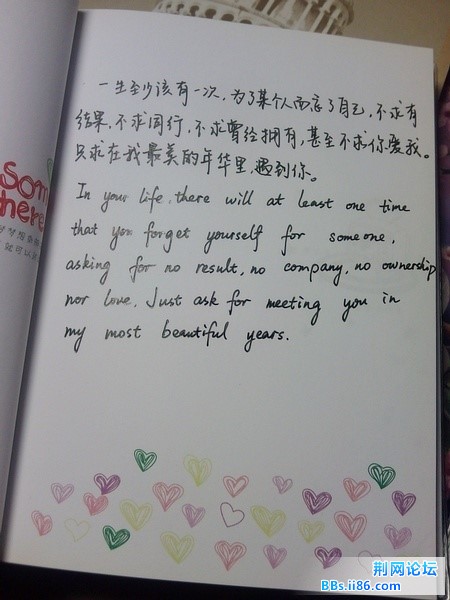 som
here
就可以
一生至少该有一次,为了某个人而忘了自己,不求有
结果,不求同行,不求曾经拥有,甚至不求你爱我。
只求在我最美的年华里,遇到你。
In your life, there will at least one time
that you forget yourself for someone,
asking for no result, no company, no ownership
nor love. Just ask for meeting you in
my most beautiful years.
荆网论坛
BBs.ii86.com